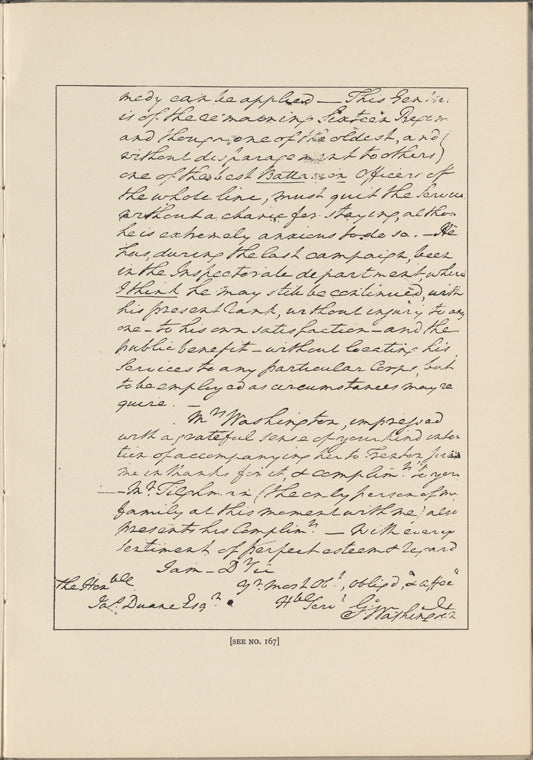 medy can be applied — This Gentn
is of the remaining Sixteen Regim
and though one of the oldest, and (
without disparagement to others)
one of the best Battalion officers of
the whole line, must quit the Service
without a chance for staying, altho
he is extremely anxious to do so. — He
has, during the last campaign, been
in the Inspectorate department, where
I think he may still be continued, with
his present rank, without injury to any
one — to his own satisfaction — and the
public benefit — without locating his
Services to any particular Corps, but
to be employed as circumstances may re
quire. —
Mrs Washington, impressed
with a grateful sense of your kind inten
tion of accompanying her to Trenton joins
me in thanks for it, & complimts to you
— Mr Tilghman (the only person of my
family at this moment with me) also
presents his Complimts — With every
sentiment of perfect esteem & regard
I am — Dr Sir
Yr most Obt, obliged, & affee
The Honble
Jas Duane Esqr.
Hble Servt
Go Washington
[SEE NO. 167]